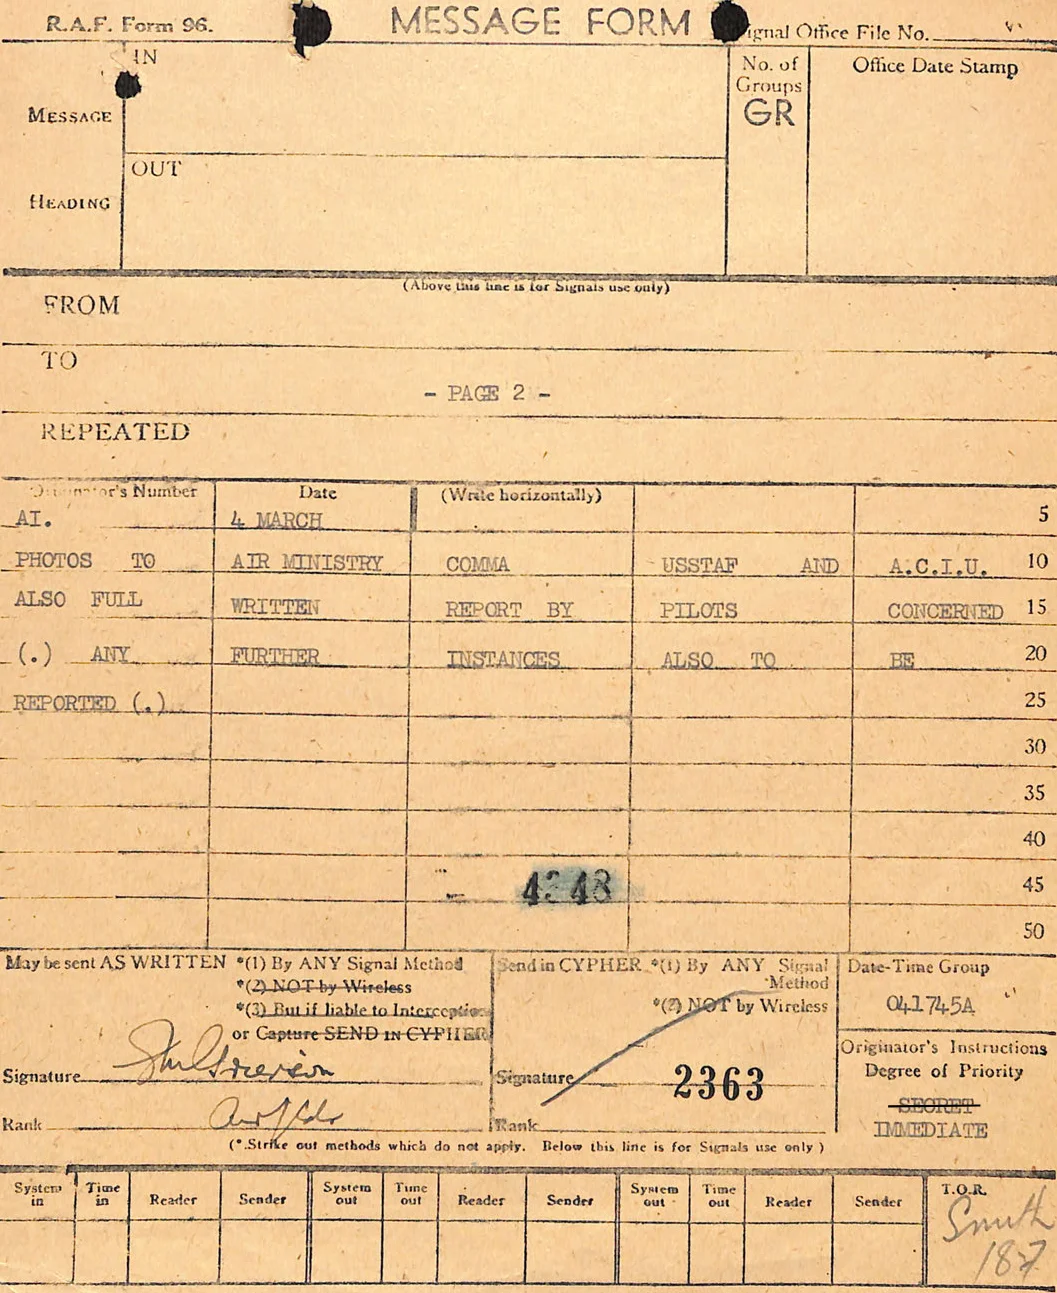 R.A.F. Form 96.
MESSAGE FORM
Signal Office File No.
IN
No. of Groups
GR
Office Date Stamp
MESSAGE
OUT
HEADING
(Above this line is for Signals use only)
FROM
TO
- PAGE 2 -
REPEATED
Originator's Number Date (Write horizontally)
AI. 4 MARCH 5
PHOTOS TO AIR MINISTRY COMMA USSTAF AND A.C.I.U. 10
ALSO FULL WRITTEN REPORT BY PILOTS CONCERNED 15
(.) ANY FURTHER INSTANCES ALSO TO BE 20
REPORTED (.) 25
30
35
40
4348 45
50
May be sent AS WRITTEN *(1) By ANY Signal Method
*(2) NOT by Wireless
*(3) But if liable to Interception
or Capture SEND IN CYPHER
Signature
Rank
Send in CYPHER *(1) By ANY Signal Method
*(2) NOT by Wireless
Signature 2363
Rank
Date-Time Group
041745A
Originator's Instructions
Degree of Priority
SECRET
IMMEDIATE
(*.Strike out methods which do not apply. Below this line is for Signals use only)
System in Time in Reader Sender System out Time out Reader Sender System out Time out Reader Sender T.O.R.
Smith